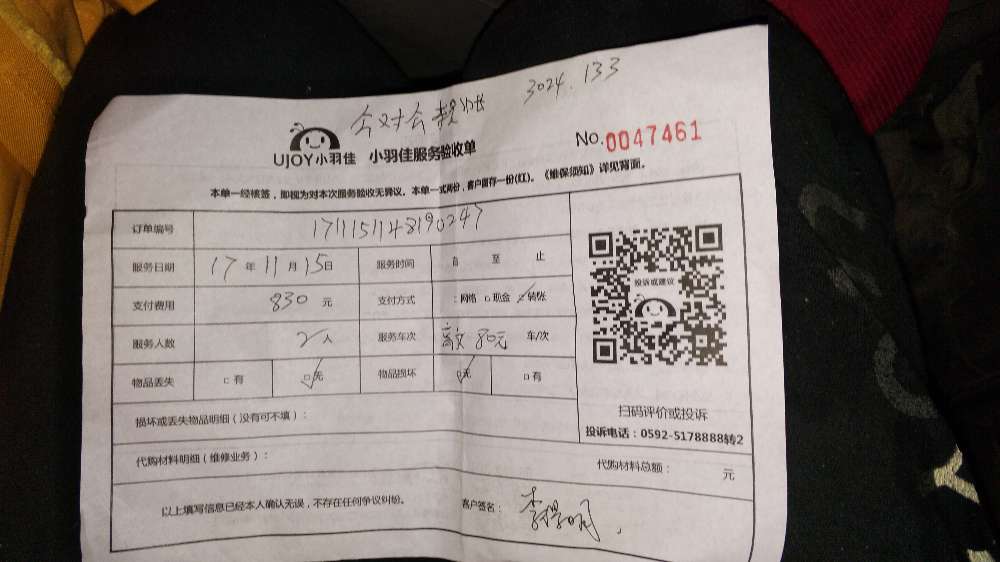 3024.133
公对公转账
UJOY小羽佳 小羽佳服务验收单
No.0047461
本单一经核签，即视为对本次服务验收无异议。本单一式两份，客户留存一份(红)。《维保须知》详见背面。
订单编号 1711151148190247
服务日期 17年11月15日 服务时间 自 至 止
支付费用 830元 支付方式 □网格 □现金 ☑转账
服务人数 2人 服务车次 80元 车/次
物品丢失 □有 ☑无 物品损坏 ☑无 □有
投诉或建议
扫码评价或投诉
投诉电话：0592-5178888转2
损坏或丢失物品明细（没有可不填）：
代购材料明细（维修业务）： 代购材料总额： 元
以上填写信息已经本人确认无误，不存在任何争议纠纷。 客户签名：